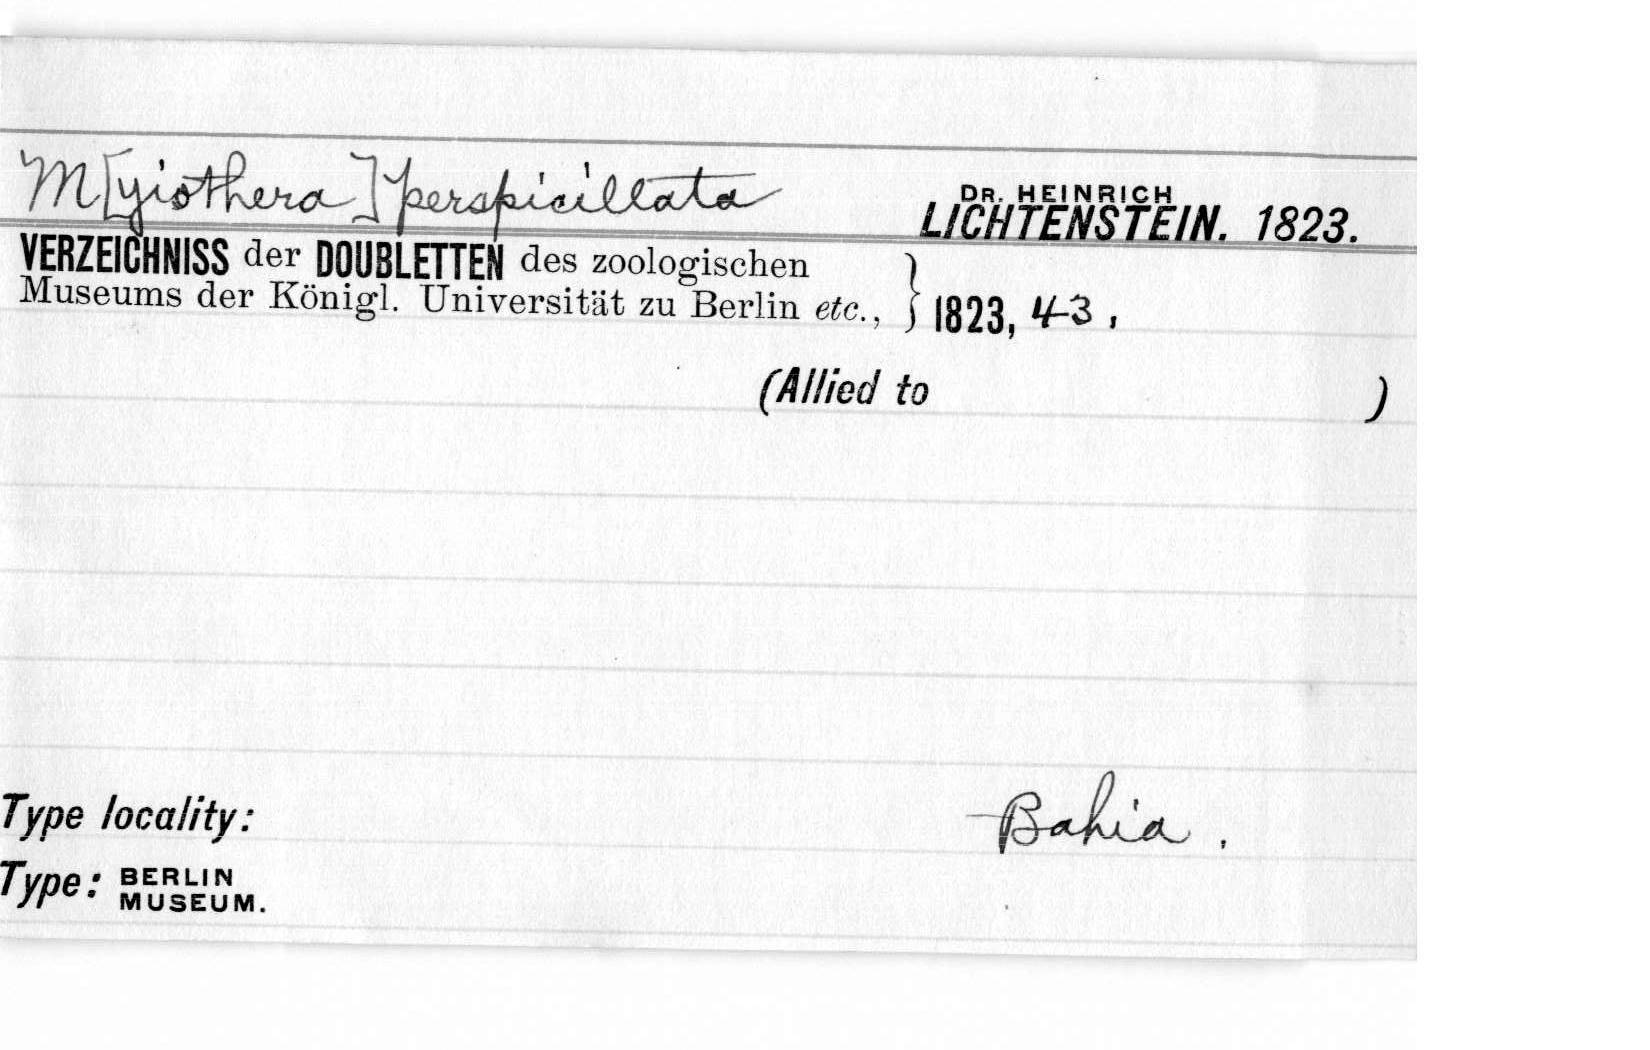 M[yiothera] perspicillata DR. HEINRICH LICHTENSTEIN. 1823.
VERZEICHNISS der DOUBLETTEN des zoologischen
Museums der Königl. Universität zu Berlin etc., } 1823, 43,
(Allied to )
Type locality: Bahia.
Type: BERLIN MUSEUM.